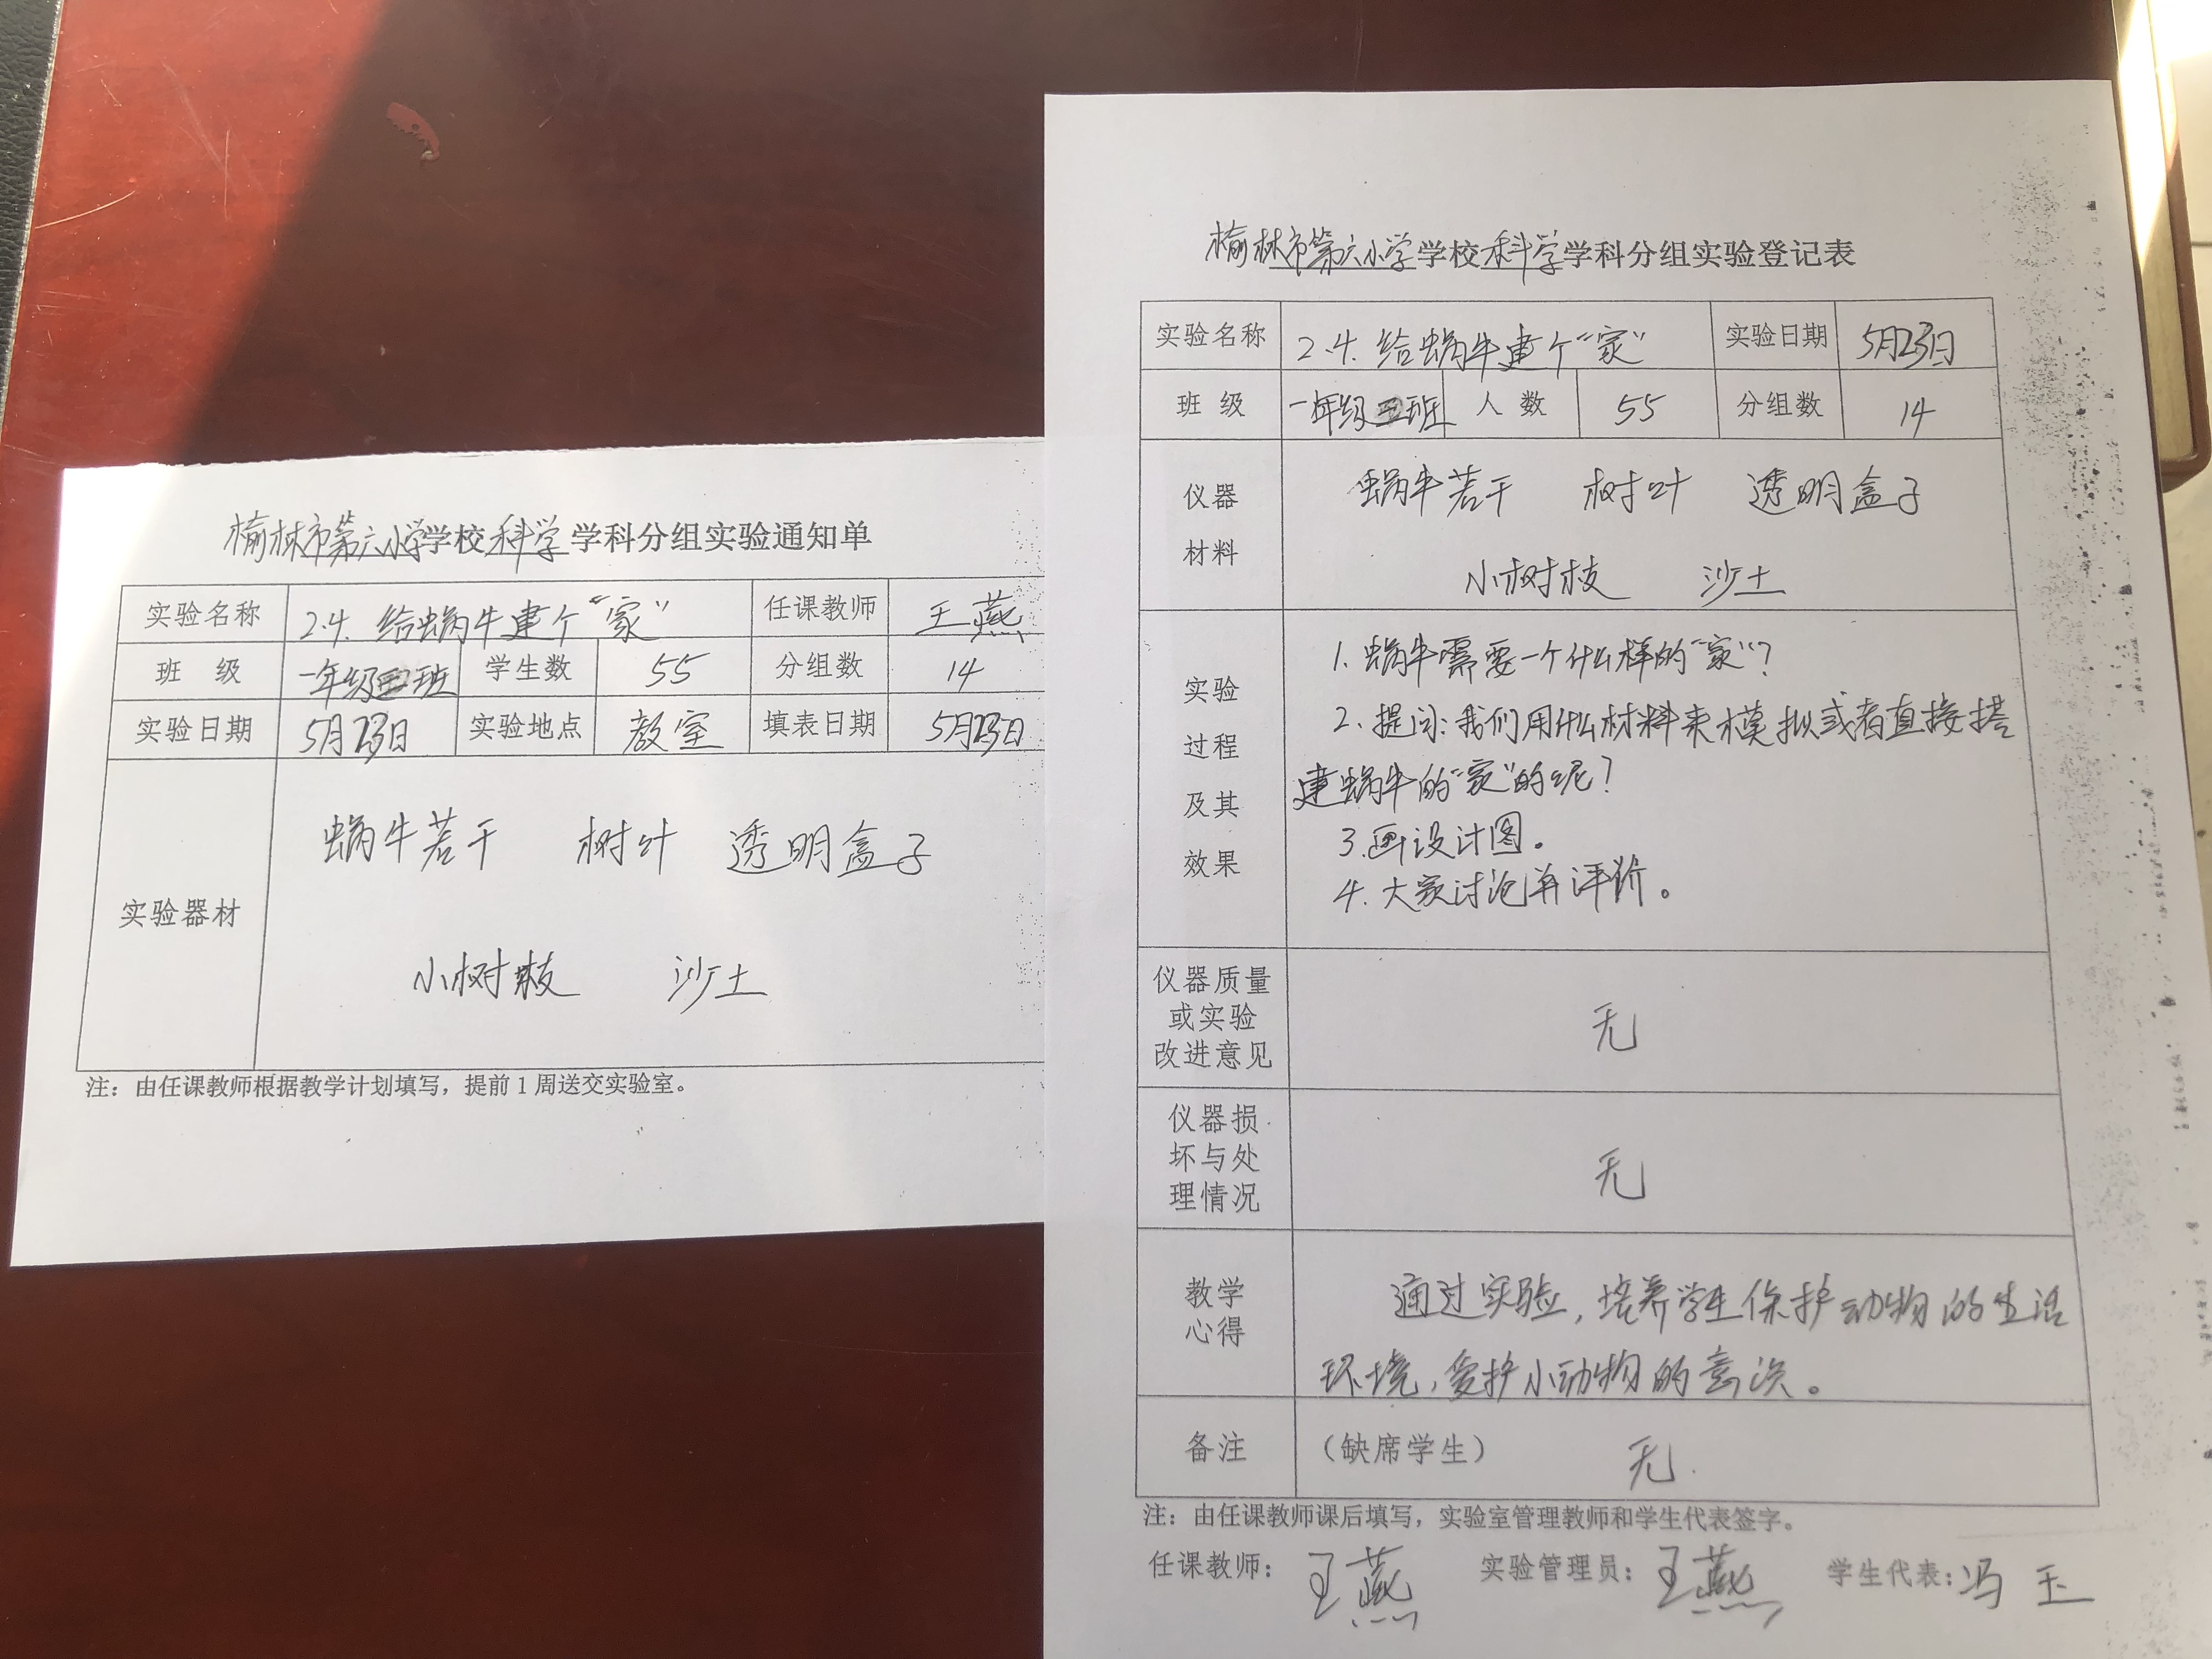 榆林市第六小学学校科学学科分组实验通知单
实验名称 2.4.给蜗牛建个“家” 任课教师 王燕
班 级 一年级班 学生数 55 分组数 14
实验日期 5月23日 实验地点 教室 填表日期 5月23日
实验器材
蜗牛若干 树叶 透明盒子
小树枝 沙土
注：由任课教师根据教学计划填写，提前1周送交实验室。
榆林市第六小学学校科学学科分组实验登记表
实验名称 2.4.给蜗牛建个“家” 实验日期 5月23日
班 级 一年级班 人 数 55 分组数 14
仪器
材料
蜗牛若干 树叶 透明盒子
小树枝 沙土
实验
过程
及其
效果
1.蜗牛需要一个什么样的“家”？
2.提问：我们用什么材料来模拟或者直接搭
建蜗牛的“家”的呢？
3.画设计图。
4.大家讨论并评价。
仪器质量
或实验
改进意见
无
仪器损
坏与处
理情况
无
教学
心得
通过实验，培养学生保护动物的生活
环境，爱护小动物的意识。
备注 （缺席学生） 无
注：由任课教师课后填写，实验室管理教师和学生代表签字。
任课教师：王燕 实验管理员：王燕 学生代表：冯玉